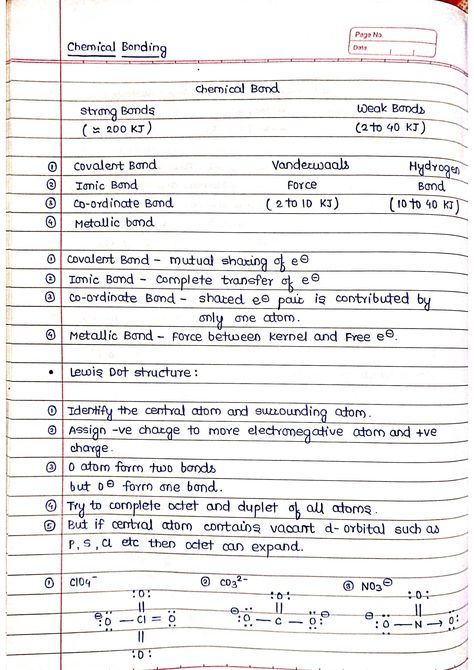 Page No.
Date
Chemical Bonding
Chemical Bond
Strong Bonds Weak Bonds
(≈ 200 KJ) (2 to 40 KJ)
① Covalent Bond Vanderwaals Hydrogen
② Ionic Bond Force Bond
③ Co-ordinate Bond (2 to 10 KJ) (10 to 40 KJ)
④ Metallic bond
① Covalent Bond - mutual sharing of e⊖
② Ionic Bond - Complete transfer of e⊖
③ Co-ordinate Bond - shared e⊖ pair is contributed by
only one atom.
④ Metallic Bond - Force between kernel and Free e⊖.
• Lewis Dot structure:
① Identify the central atom and surrounding atom.
② Assign -ve charge to more electronegative atom and +ve
charge.
③ O atom form two bonds
but O⊖ form one bond.
④ Try to complete octet and duplet of all atoms.
⑤ But if central atom contains vacant d-orbital such as
P, S, Cl etc then octet can expand.
① ClO4⁻ ② CO3²⁻ ③ NO3⊖
:O: :O: :O:
|| || ||
⊖:O — Cl = O ⊖:O — C — O:⊖ ⊖:O — N → O:
||
:O: